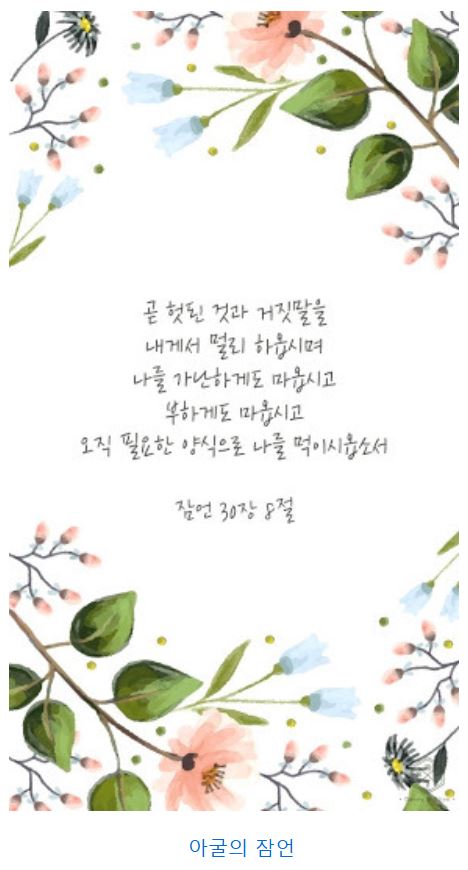 곧 헛된 것과 거짓말을
내게서 멀리 하옵시며
나를 가난하게도 마옵시고
부하게도 마옵시고
오직 필요한 양식으로 나를 먹이시옵소서
잠언 30장 8절
아굴의 잠언